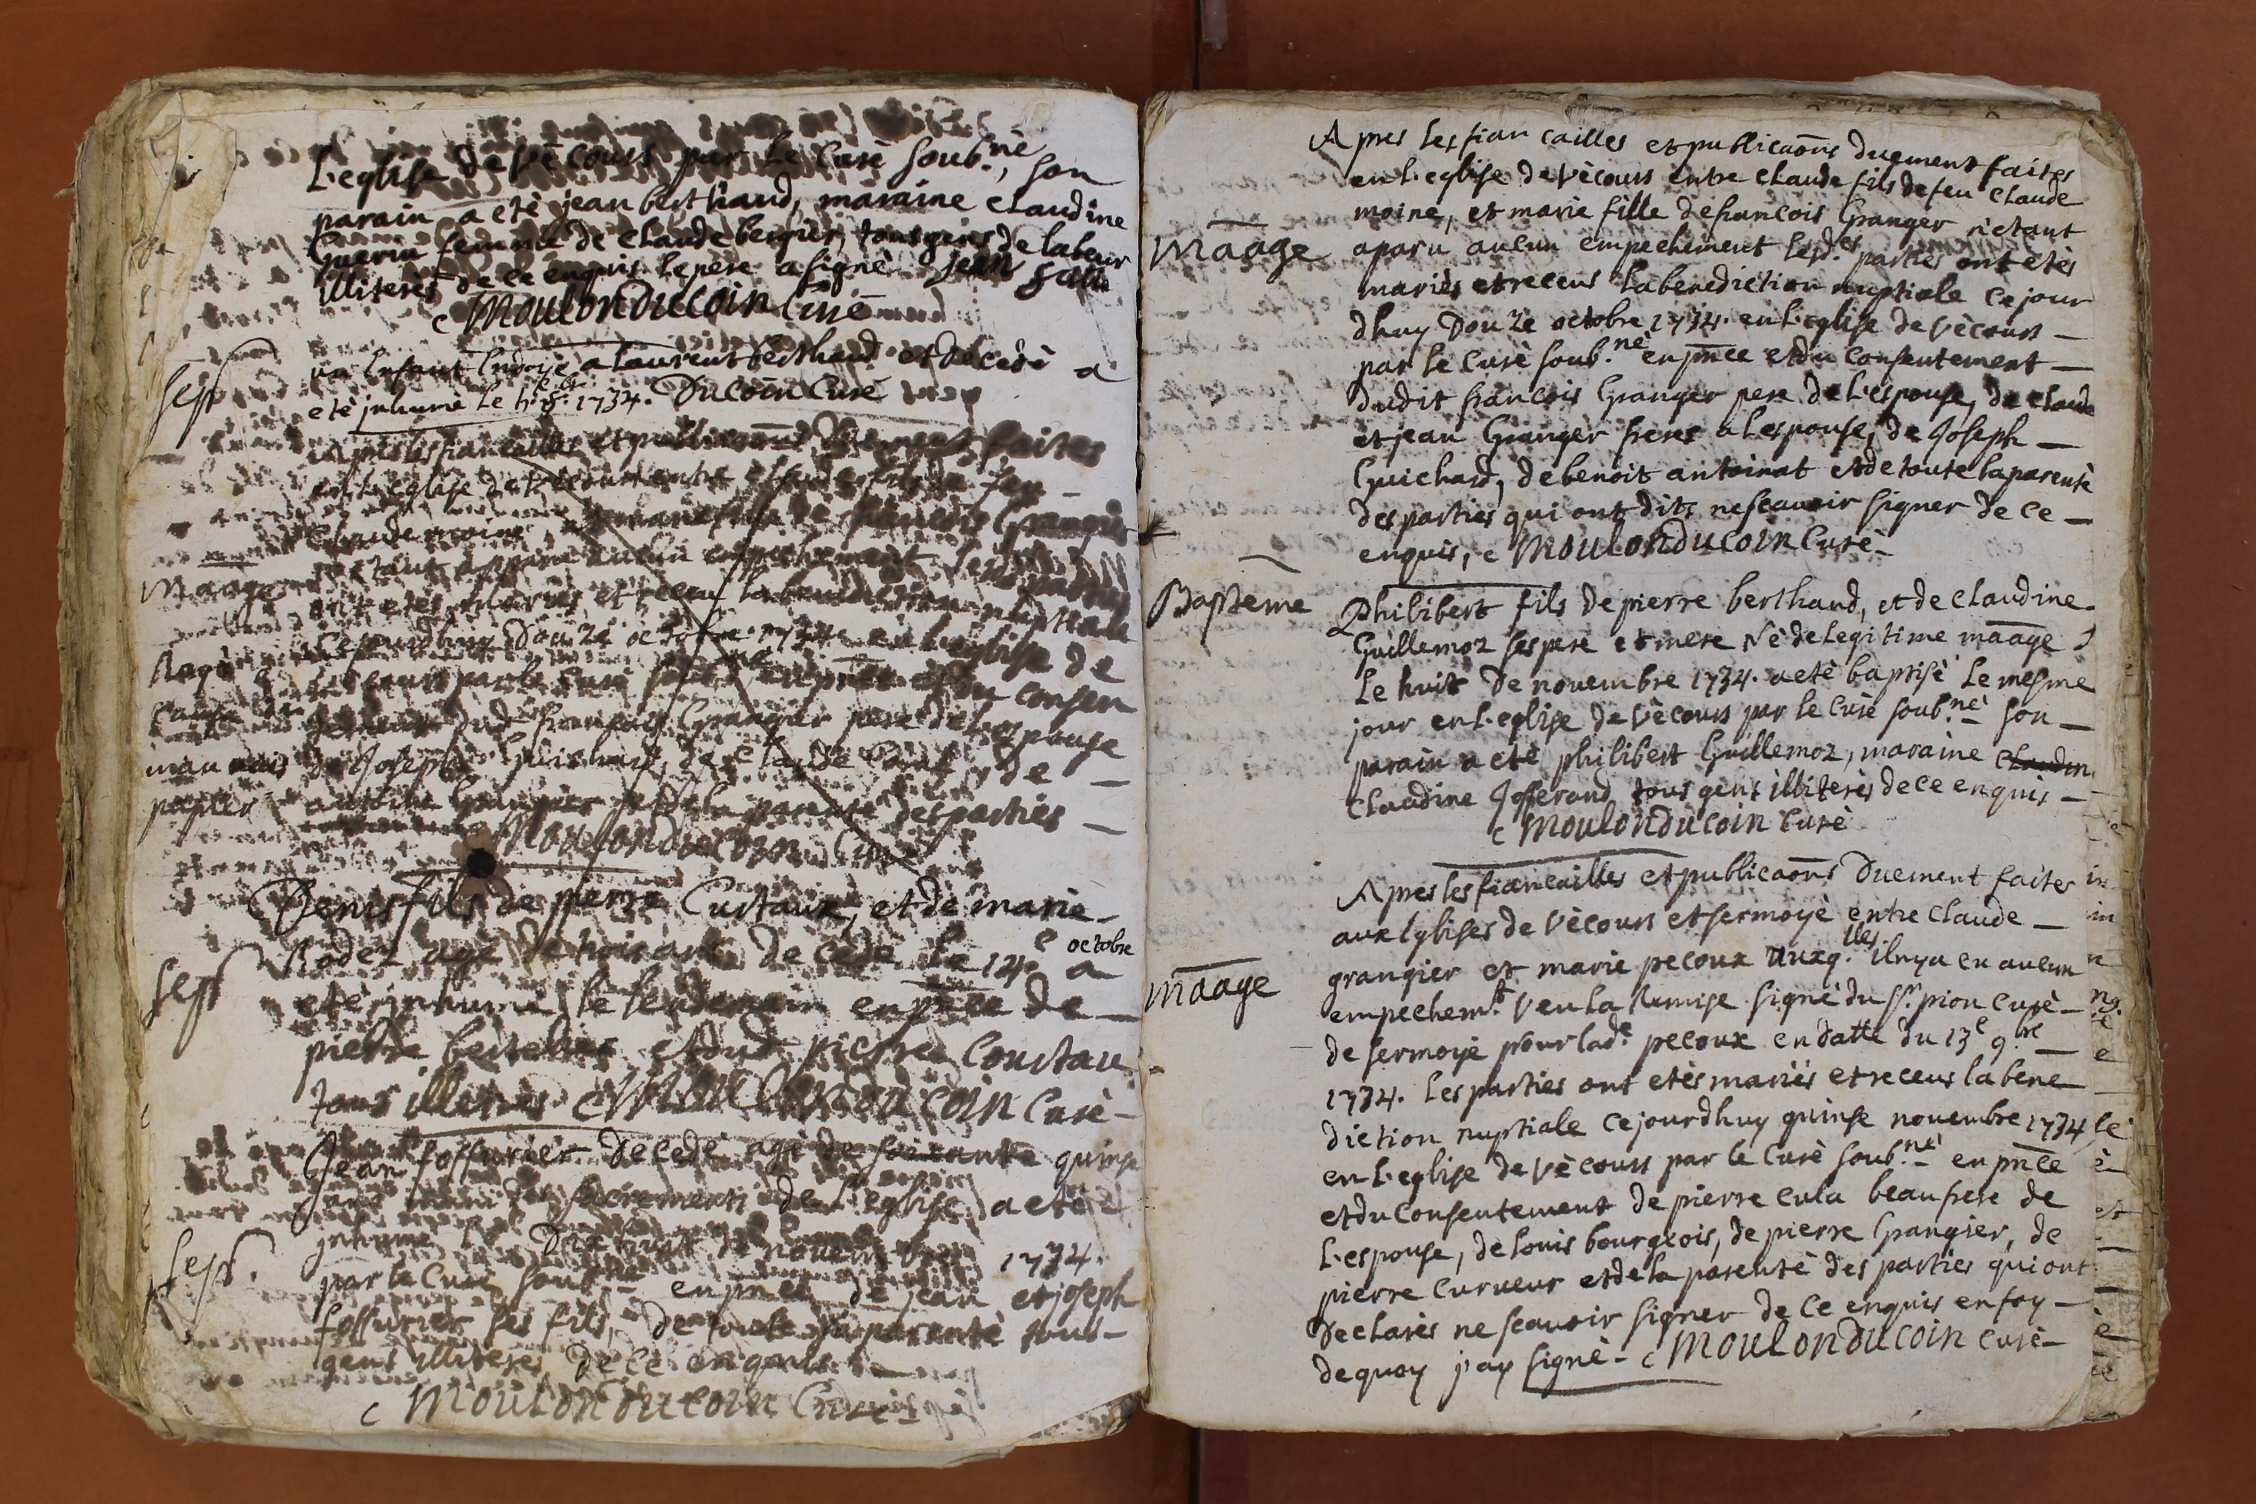 L'eglise de vècours par le Curè soub.nè, son
parain a etè jean berthaud, maraine claudine
Guerin femme de claude bergier, tous gens de labeur
illiterès de ce enquis le pere a signè jean
c Moulonducoin Curè
sep
un enfant a laurent berthaud et decedè a
etè jnhumè le 1734. Ducoin Curè
apres les fiancailles et publicaōns duement faites
en l'eglise de vècours entre claude fils de feu
claude moine, et marie fille de francois Granger
n'etant apparu aucun empechement lesd. parties
Maage
ont etès mariès et receu la benediction nuptiale
cejourdhuy Douze octobre 1734 en l'eglise de
Rayè a
vècours par le Curè soub.nè en pn̄ce et du consen
cause du
tement dud. francois Grangier pere de l'espouse
mauvais
de Joseph Guichard, de claude de
papier
antoine Grangier et de la parentè des parties
Moulonducoin Curè
Denis fils de pierre Curtaux, et de marie
Rodet agè de trois ans decede le 14.e octobre a
sep
etè jnhumè le lendemain en pn̄ce de
pierre berthelier et dud. pierre Courtau
tous illiterès c Moulonducoin Curè
Jean fossurier decedè agè de soixante quinse
ans muni des sacrements de l'eglise a etè
jnhumè le Dixhuit de novembre 1734.
sep.
par le Curè soub.nè en pn̄ce de jean et joseph
fossurier ses fils, de toute sa parentè tous
gens illiterès de ce enquis
c Moulonducoin Curè
Apres les fiancailles et publicaōns duement faites
en l'eglise de vècours entre claude fils de feu claude
moine, et marie fille de francois Granger n'etant
Maage
aparu aucun empechement lesd.es parties ont etès
mariès et receus la benediction nuptiale ce jour
dhuy Douze octobre 1734. en l'eglise de vècours
par le Curè soub.nè en pn̄ce et du consentement
dudit francois Granger pere de l'espouse, de claude
et jean Granger freres a lespouse, de Joseph
Guichard, de benoit antoinat et de toute la parentè
des parties qui ont dits ne scavoir signer de ce
enquis, c Moulonducoin Curè
Bapteme
Philibert fils de pierre berthaud, et de claudine
Guillemoz ses pere et mere Nè de legitime maage
le huit de novembre 1734. a etè baptisè le mesme
jour en l'eglise de vècours par le Curè soub.nè son
parain a etè philibert Guillemoz, maraine claudin
claudine Josserand tous gens illiterès de ce enquis
c Moulonducoin Curè
Apres les fiancailles et publicaōns Duement faites
aux Eglises de vècours et sermoyè entre claude
grangier et marie pecoux auxq.lles il n'y a eu aucun
Maage
empechem.t veu la Remise signè du sr pion Curè
de sermoyè pour lad.e pecoux en datte du 13e 9.bre
1734. les parties ont etès mariès et receus la bene
diction nuptiale cejourdhuy quinse novembre 1734
en l'eglise de vècours par le Curè soub.nè en pn̄ce
et du consentement de pierre cula beaufrere de
l'espouse, de louis bourgeois, de pierre Grangier, de
pierre curveur et de la parentè des parties qui ont
declarès ne scavoir signer de ce enquis en foy
de quoy j'ay signè - c Moulonducoin Curè